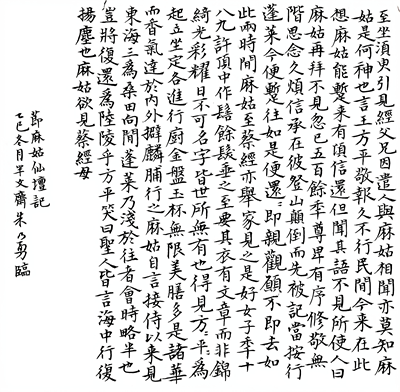 至坐須臾引見經父兄因遣人與麻姑相聞亦莫知麻
姑是何神也言王方平敬報久不行民間今來在此
想麻姑能蹔来有頃信還但聞其語不見所使人曰
麻姑再拜不見忽已五百餘年尊卑有序修敬無
階思念久煩信承在彼登山顛倒而先被記當按行
蓬萊今便蹔往如是便還〻即親觀願不即去如
此兩時間麻姑至蔡經亦舉家見之是好女子年十
八九許頂中作髻餘髮垂之至要其衣有文章而非錦
綺光彩耀日不可名字皆世所無有也得見方〻平〻為
起立坐定各進行廚金盤玉杯無限美膳多是諸華
而香氣達於內外擗麟脯行之麻姑自言接侍以來見
東海三為桑田向間蓬萊乃淺於往者會時略半也
豈將復還為陸陵乎方平笑曰聖人皆言海中行復
揚塵也麻姑欲見蔡經母
節麻姑仙壇記
乙巳冬月半文齋朱乃勇臨